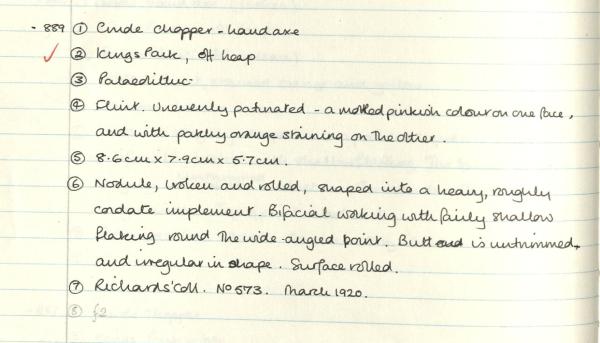 ·889 ① Crude chopper-handaxe
✓ ② Kings Park, off heap
③ Palaeolithic
④ Flint. Unevenly patinated - a mottled pinkish colour on one face,
and with patchy orange staining on the other.
⑤ 8.6cm x 7.9cm x 5.7cm.
⑥ Nodule, broken and rolled, shaped into a heavy, roughly
cordate implement. Bifacial working with fairly shallow
flaking round the wide-angled point. Butt is untrimmed
and irregular in shape. Surface rolled.
⑦ Richards' Coll. No 573. March 1920.
⑧ £2